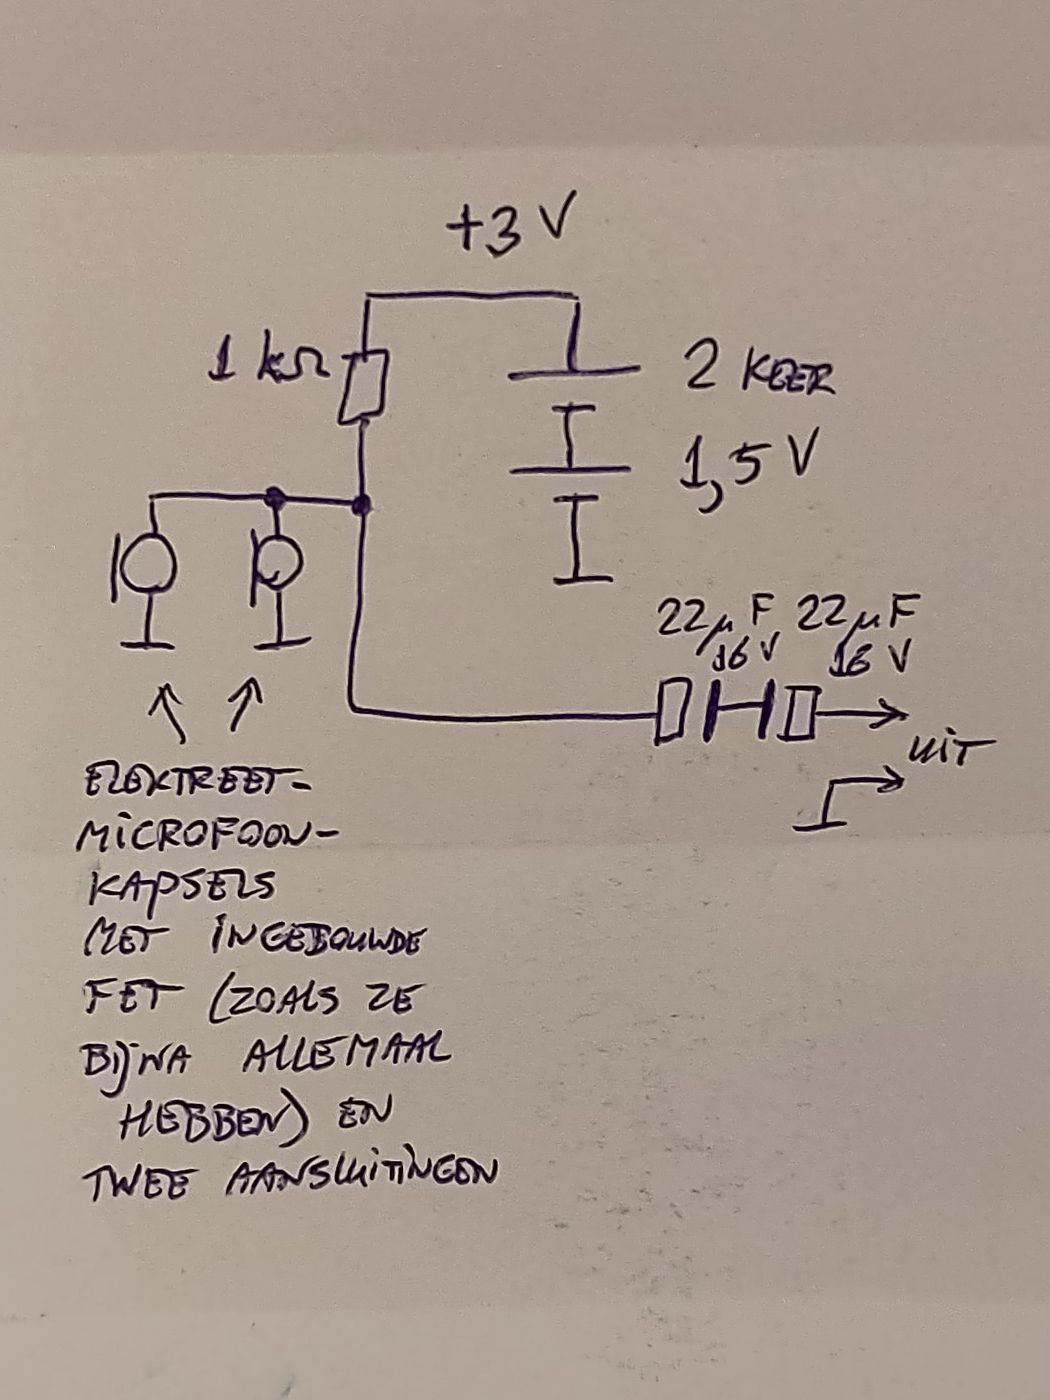 +3 V
1 kΩ
2 KEER
1,5 V
22µF 22µF
16 V 16 V
UIT
ELEKTREET-
MICROFOON-
KAPSELS
MET INGEBOUWDE
FET (ZOALS ZE
BIJNA ALLEMAAL
HEBBEN) EN
TWEE AANSLUITINGEN